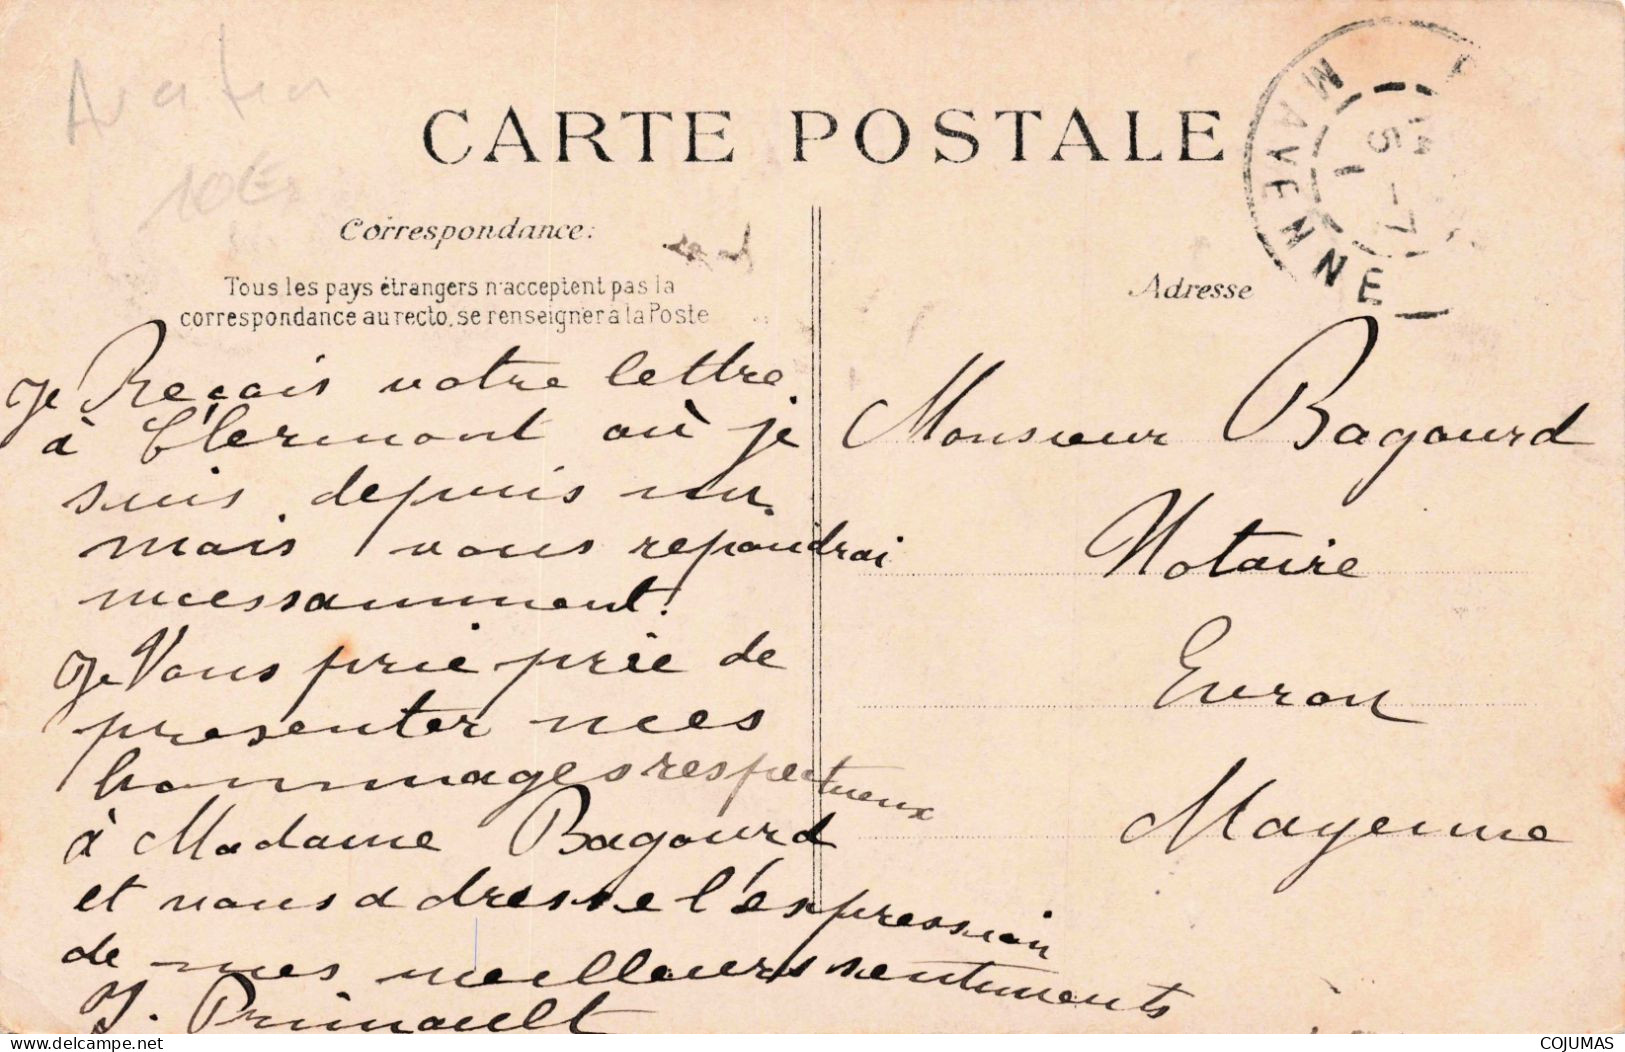 CARTE POSTALE
Correspondance:
Tous les pays étrangers n'acceptent pas la
correspondance au recto, se renseigner à la Poste
Je Reçois votre lettre
à Clermont où je
suis depuis un
mois vous repondrai
incessamment.
Je Vous prie prie de
presenter mes
hommages respectueux
à Madame Bagourd
et vous adresse l'expression
de mes meilleurs sentiments
J. Primault
MAYENNE
Adresse
Monsieur Bagourd
Notaire
Evron
Mayenne
www.delcampe.net
COJUMAS